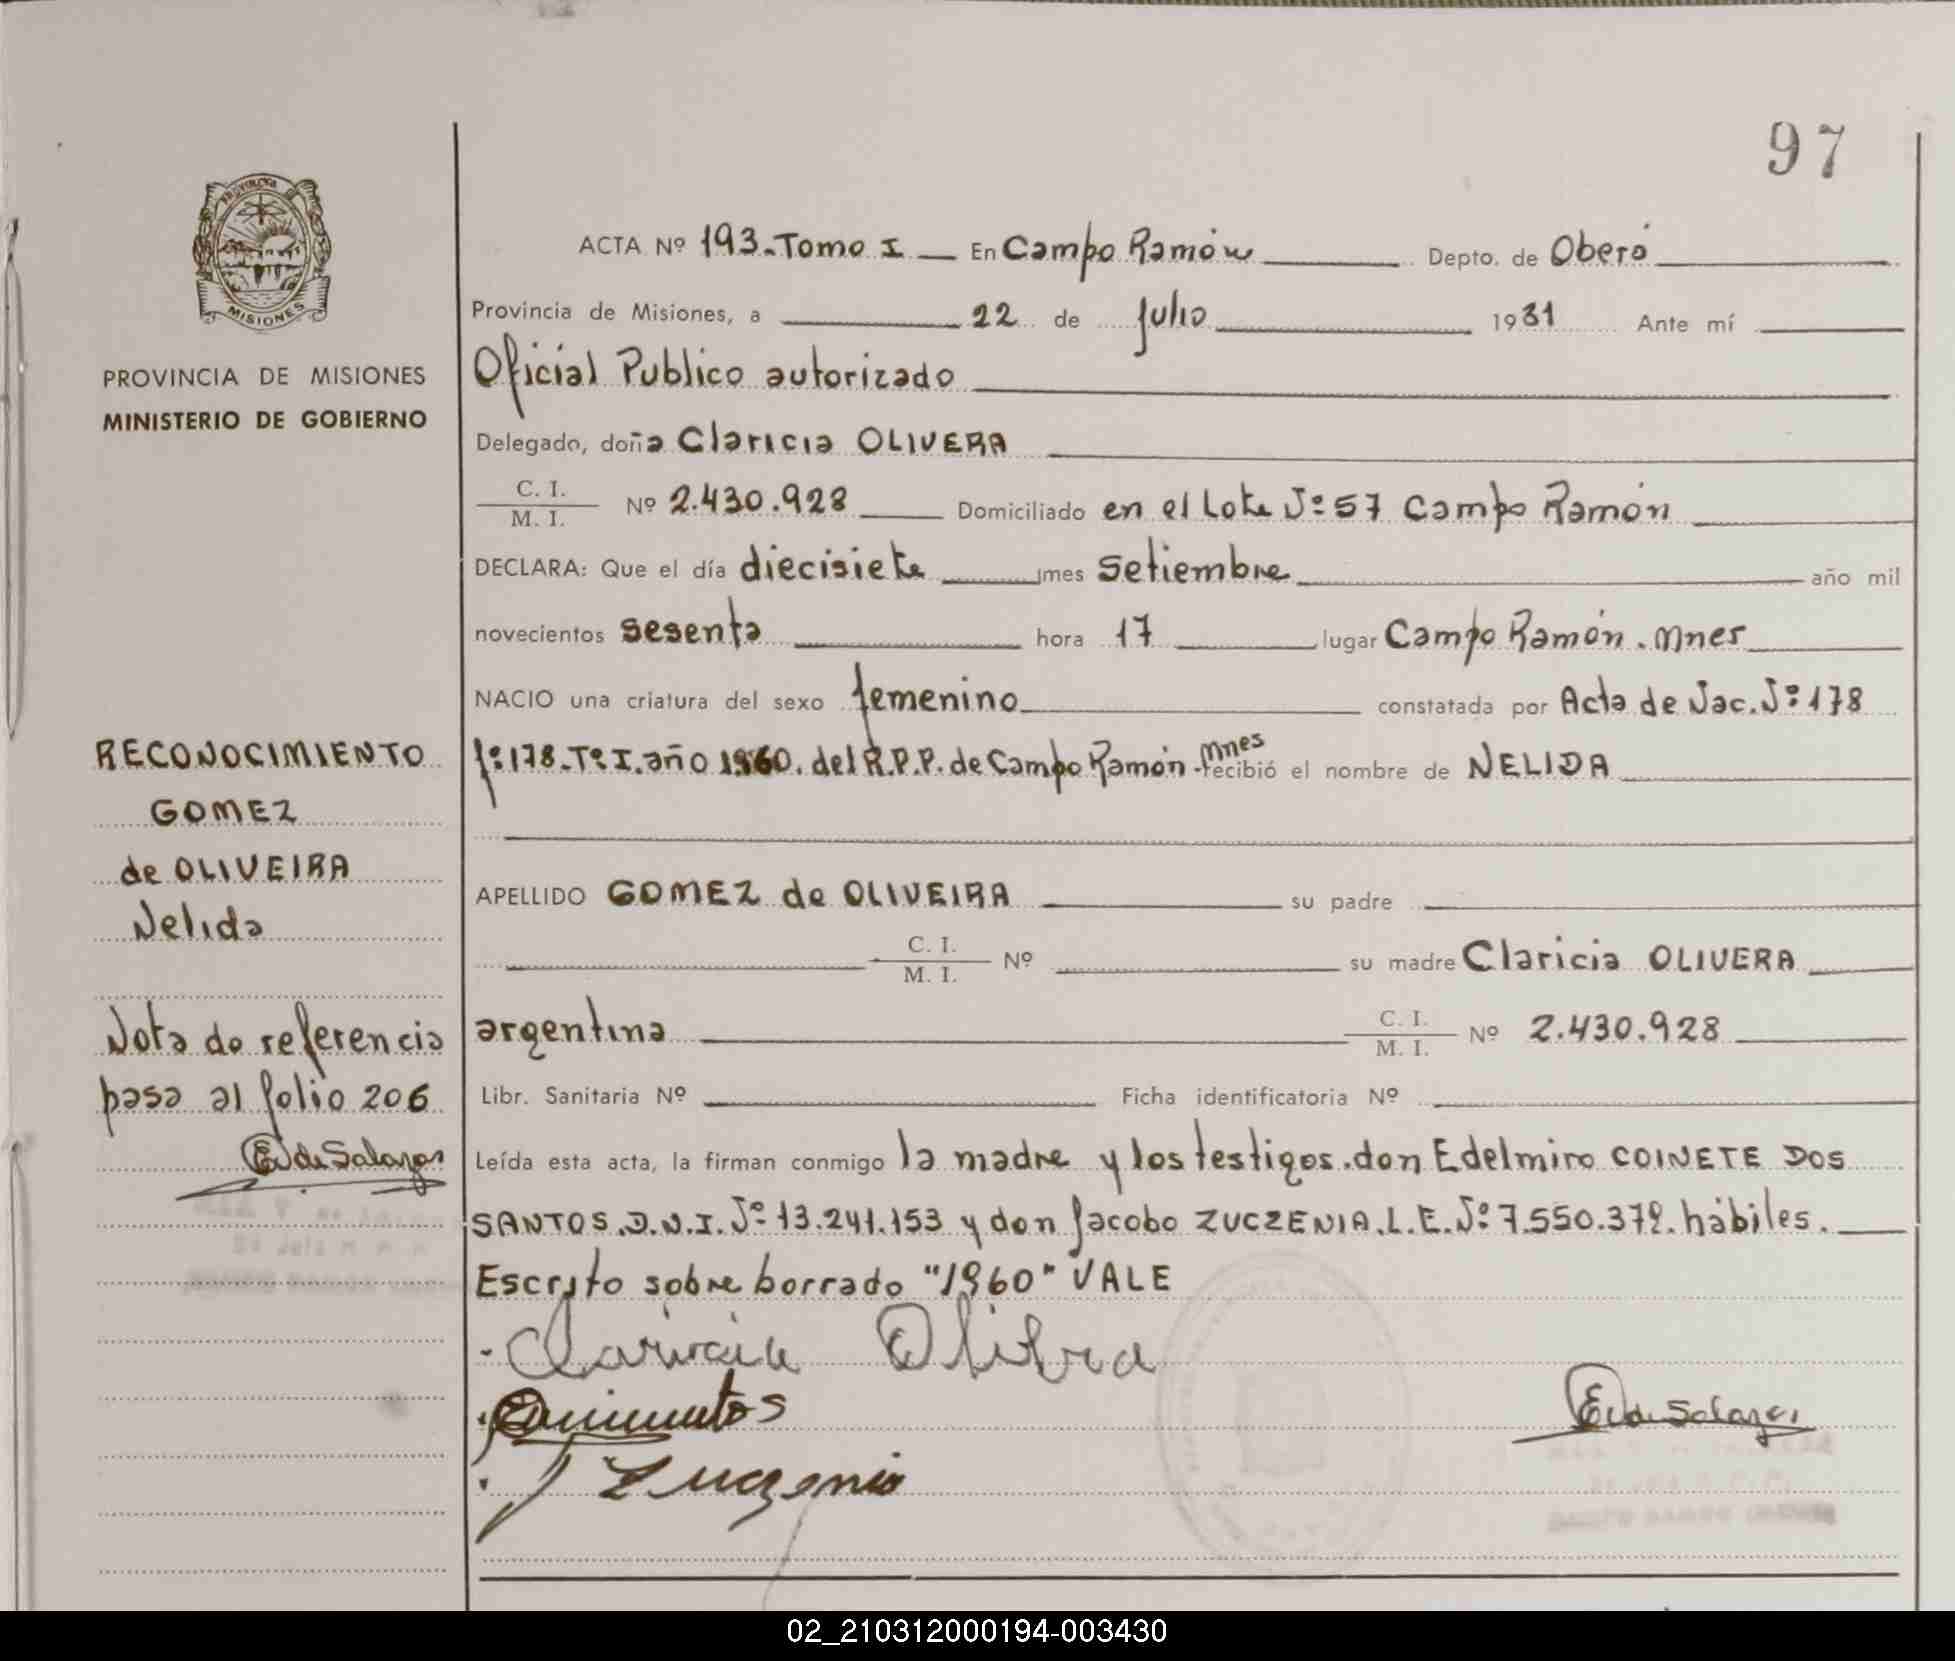 97
PROVINCIA DE MISIONES
MINISTERIO DE GOBIERNO
ACTA Nº 193-Tomo I En Campo Ramón Depto. de Oberá
Provincia de Misiones, a 22 de Julio 1981 Ante mí
Oficial Publico autorizado
Delegado, doña Claricia OLIVERA
C. I.
M. I. Nº 2.430.928 Domiciliado en el Lote Nº 57 Campo Ramón
DECLARA: Que el día diecisiete mes Setiembre año mil
novecientos sesenta hora 17 lugar Campo Ramón. Mnes
NACIO una criatura del sexo femenino constatada por Acta de Nac. Nº 178
fº 178-Tº I. año 1960. del R.P.P. de Campo Ramón-Mnes recibió el nombre de NELIDA
APELLIDO GOMEZ de OLIVEIRA su padre
C. I.
M. I. Nº su madre Claricia OLIVERA
argentina C. I.
M. I. Nº 2.430.928
Libr. Sanitaria Nº Ficha identificatoria Nº
Leída esta acta, la firman conmigo la madre y los testigos. don Edelmiro COINETE DOS
SANTOS. D.N.I. Nº 13.241.153 y don Jacobo ZUCZENIA. L.E. Nº 7.550.379. hábiles.
Escrito sobre borrado "1960" VALE
Claricia Olibra
J Zuczenia
E de Salazar
RECONOCIMIENTO
GOMEZ
de OLIVEIRA
Nelida
Nota de referencia
pasa al folio 206
E de Salazar
02_210312000194-003430